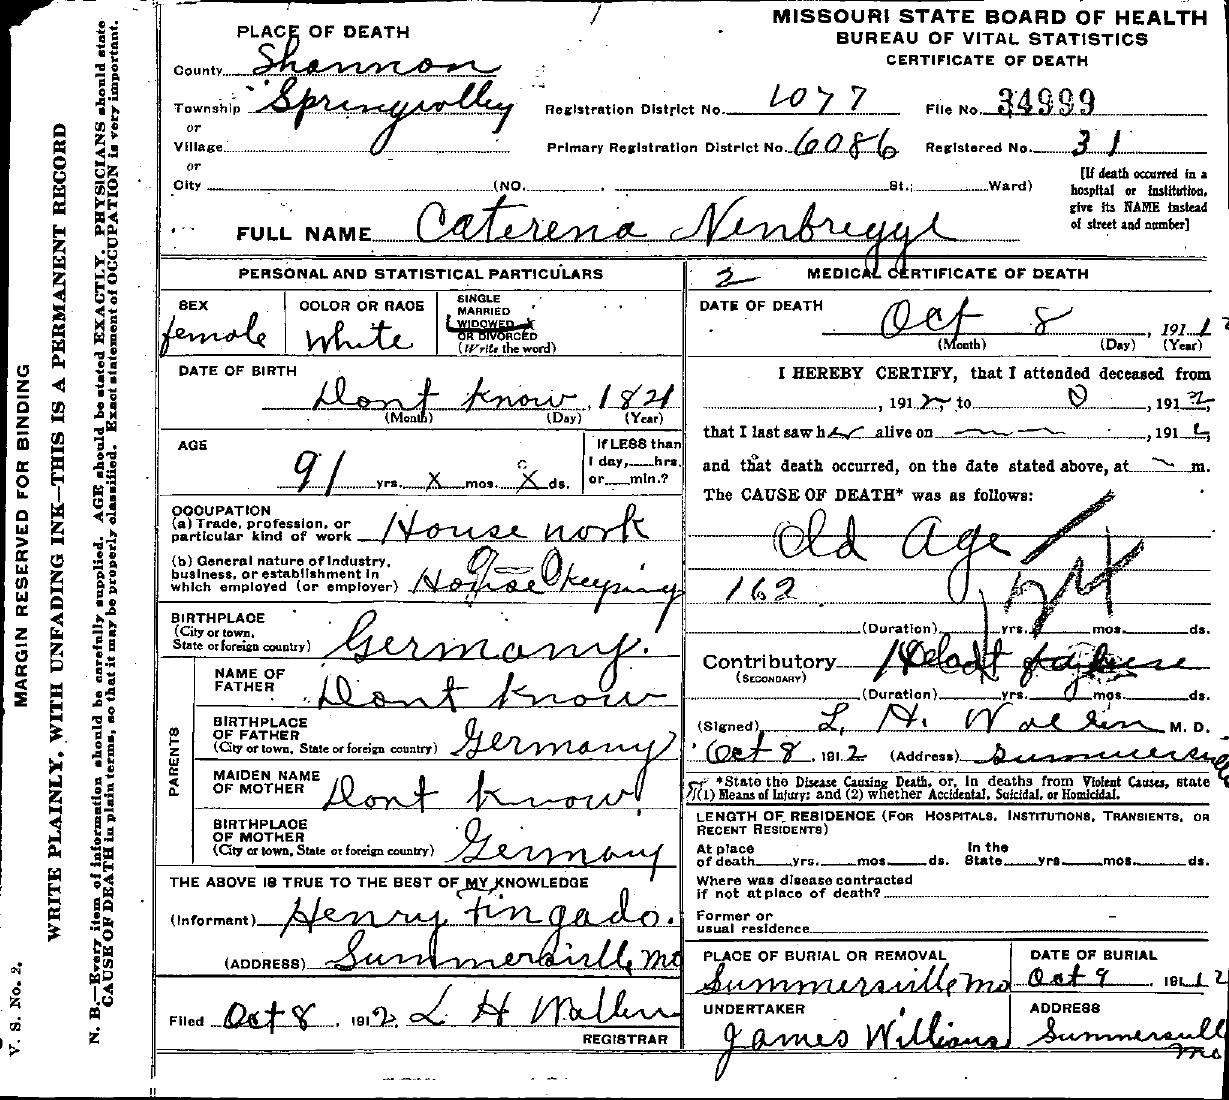 MISSOURI STATE BOARD OF HEALTH
BUREAU OF VITAL STATISTICS
CERTIFICATE OF DEATH
PLACE OF DEATH
County Shannon
Township Springvolley
or
Village
or
City (NO. St.; Ward)
Registration District No. 1077 File No. 34999
Primary Registration District No. 6086 Registered No. 31
[If death occurred in a
hospital or institution,
give its NAME instead
of street and number]
FULL NAME Caterena
PERSONAL AND STATISTICAL PARTICULARS
SEX
female
COLOR OR RACE
White
SINGLE
MARRIED
WIDOWED
OR DIVORCED
(Write the word)
DATE OF BIRTH
Dont Know, 1821
(Month) (Day) (Year)
AGE
91 yrs. X mos. X ds.
If LESS than
1 day, hrs.
or min.?
OCCUPATION
(a) Trade, profession, or
particular kind of work House work
(b) General nature of industry,
business, or establishment in
which employed (or employer) House Keeping
BIRTHPLACE
(City or town,
State or foreign country) Germany.
PARENTS
NAME OF
FATHER Dont Know
BIRTHPLACE
OF FATHER
(City or town, State or foreign country) Germany
MAIDEN NAME
OF MOTHER Dont Know
BIRTHPLACE
OF MOTHER
(City or town, State or foreign country) Germany
THE ABOVE IS TRUE TO THE BEST OF MY KNOWLEDGE
(Informant) Henry Fingado.
(ADDRESS) Summersville, Mo
Filed Oct 8, 1912. L H Wallin
REGISTRAR
2 MEDICAL CERTIFICATE OF DEATH
DATE OF DEATH
Oct 8, 1912
(Month) (Day) (Year)
I HEREBY CERTIFY, that I attended deceased from
, 1912, to 0, 1912,
that I last saw her alive on , 191
and that death occurred, on the date stated above, at m.
The CAUSE OF DEATH* was as follows:
Old Age
162
(Duration) yrs. mos. ds.
Contributory
(SECONDARY)
(Duration) yrs. mos. ds.
(Signed) L. H. Wallin M. D.
Oct 8, 1912 (Address) Summersvil
*State the Disease Causing Death, or, in deaths from Violent Causes, state
(1) Means of Injury; and (2) whether Accidental, Suicidal, or Homicidal.
LENGTH OF RESIDENCE (FOR HOSPITALS, INSTITUTIONS, TRANSIENTS, OR
RECENT RESIDENTS)
At place
of death yrs. mos. ds.
In the
State yrs. mos. ds.
Where was disease contracted
if not at place of death?
Former or
usual residence
PLACE OF BURIAL OR REMOVAL
Summersville Mo
DATE OF BURIAL
Oct 9, 1912
UNDERTAKER
James Williams
ADDRESS
Summersvill
Mo
V. S. No. 2.
MARGIN RESERVED FOR BINDING
WRITE PLAINLY, WITH UNFADING INK—THIS IS A PERMANENT RECORD
N. B.—Every item of information should be carefully supplied. AGE should be stated EXACTLY. PHYSICIANS should state
CAUSE OF DEATH in plain terms, so that it may be properly classified. Exact statement of OCCUPATION is very important.